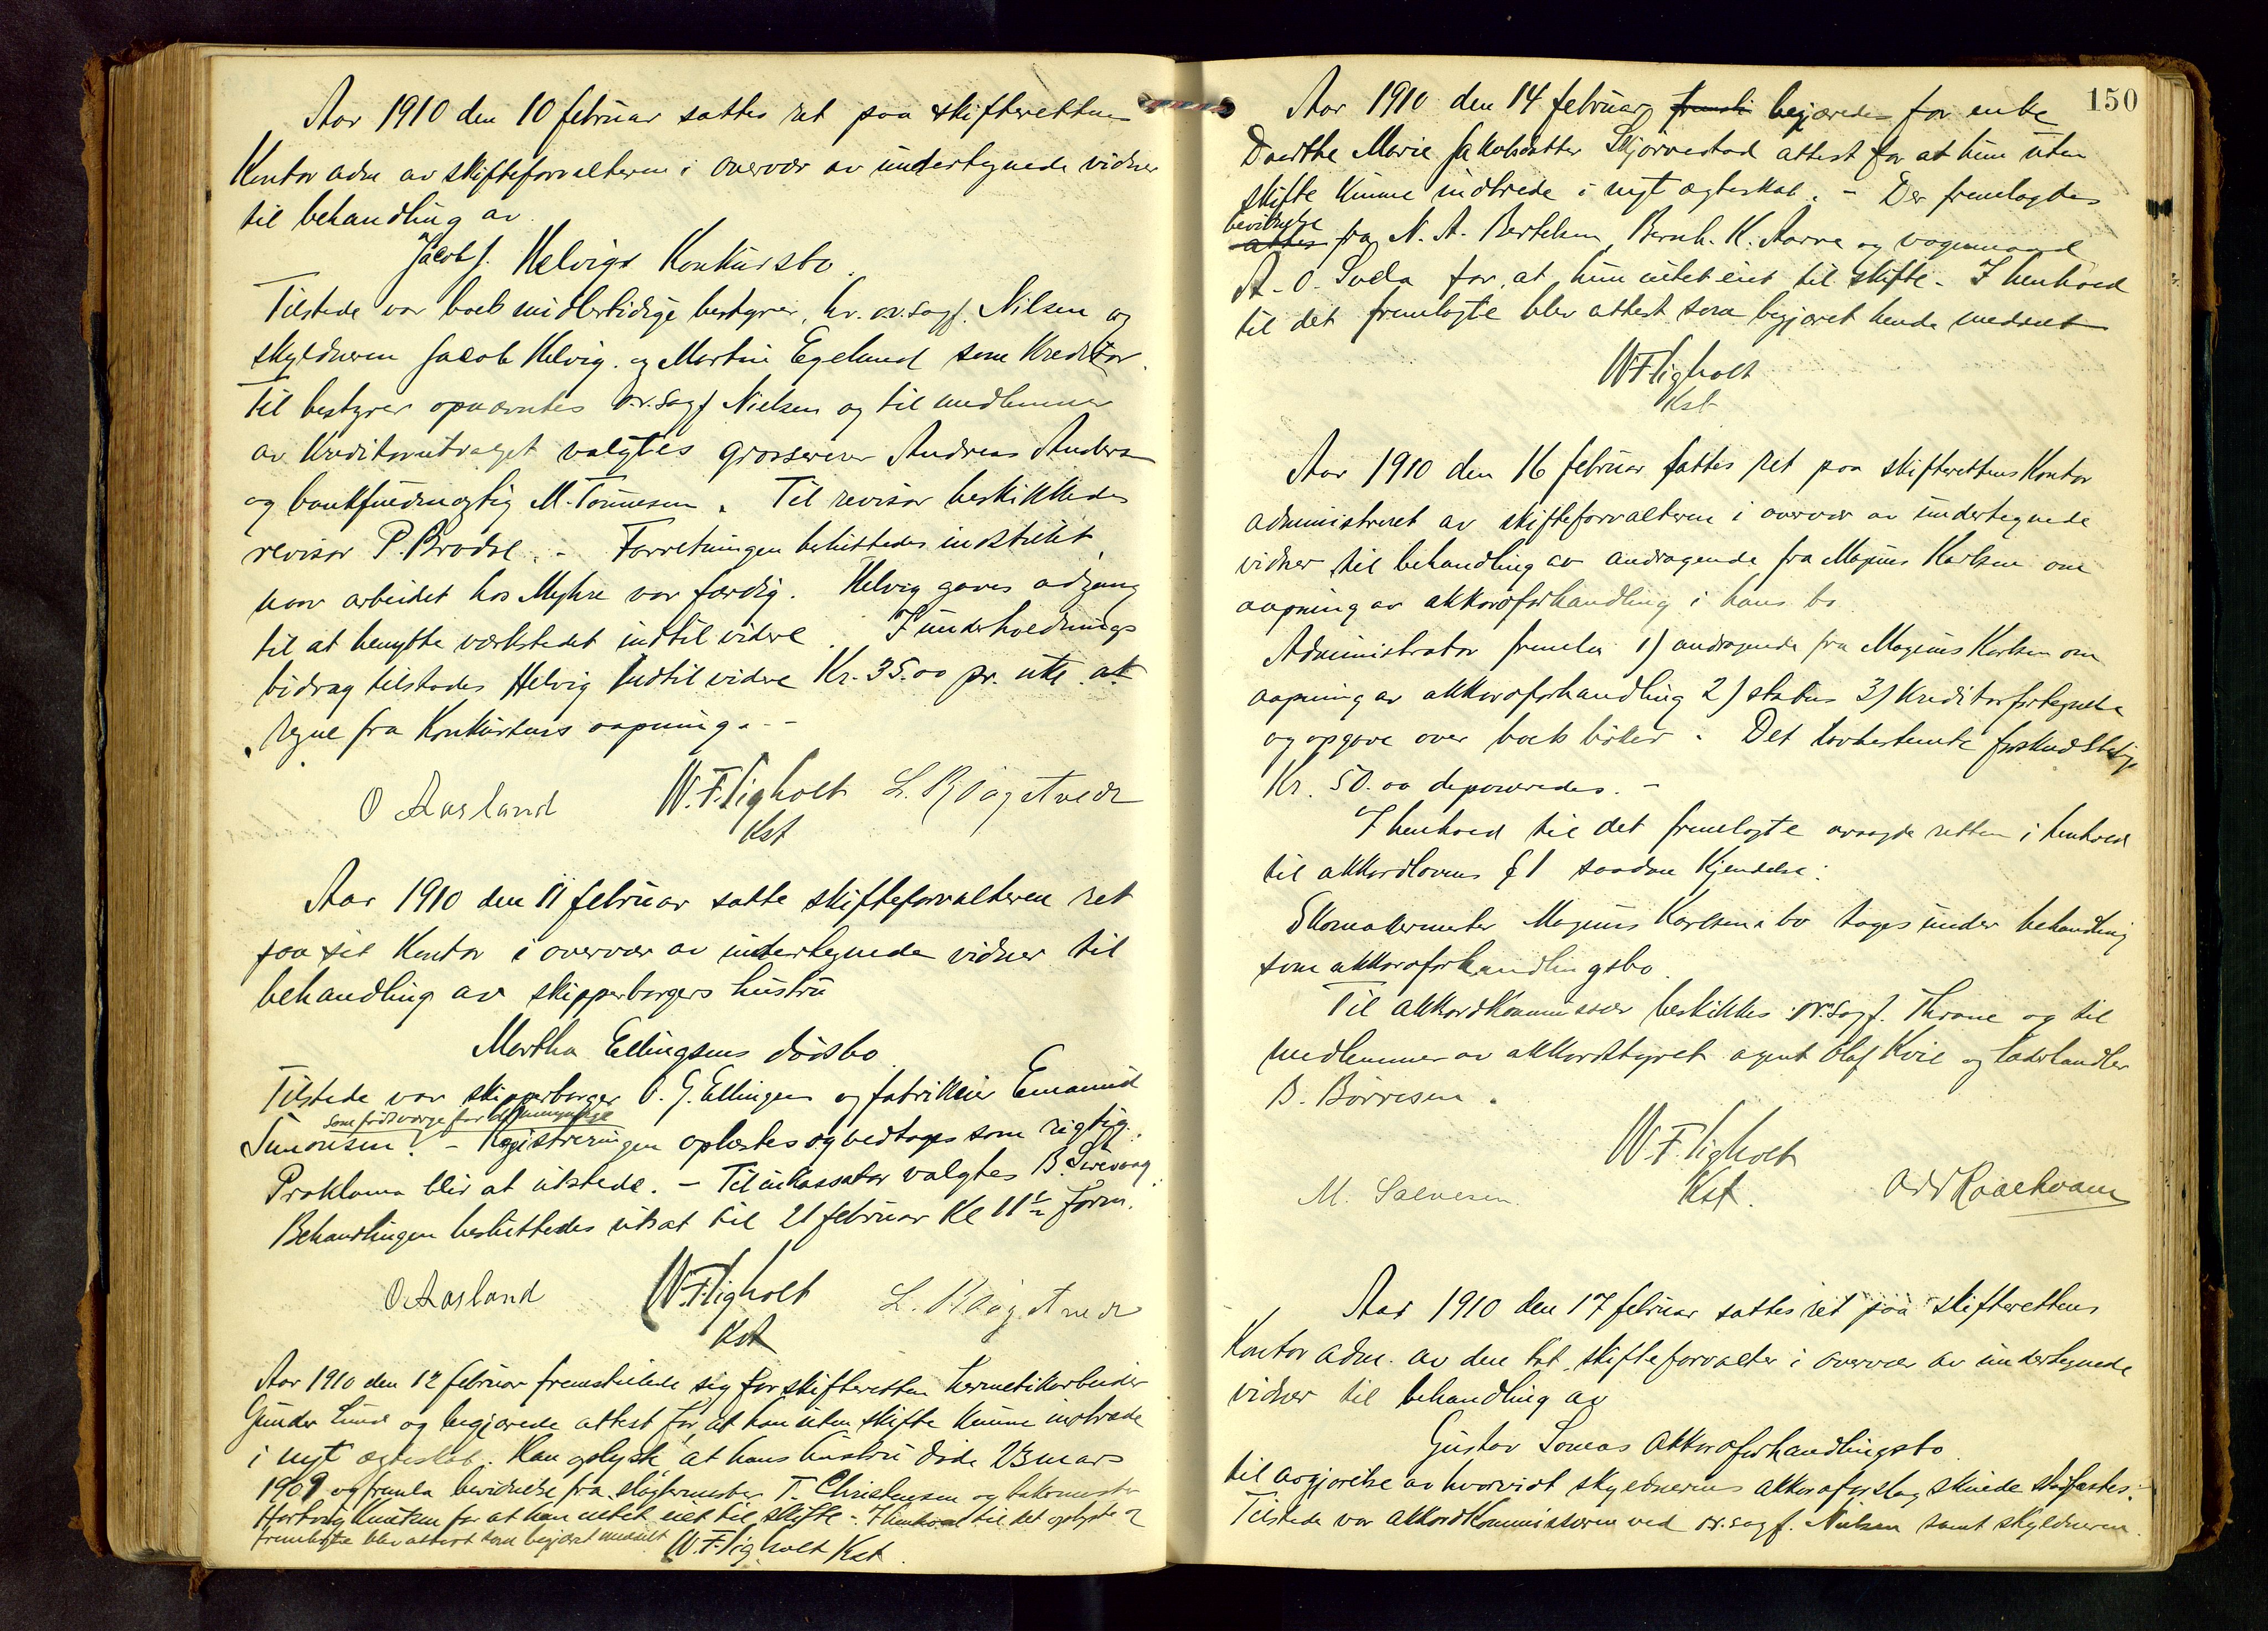 Aar 1910 den 10 februar sattes ret paa skifterettens
Kontor adm av skifteforvalteren i overvær av undertegnede vidner
til behandling av
Jacob J. Helvigs Konkursbo.
Tilstede var boets midlertidige bestyrer, hr. o.r.sagf. Nilsen og
skyldneren Jacob Helvig. og Martin Egeland som Kreditor.
Til bestyrer opnævntes o.r.sagf Nielsen og til medlemmer
av Kreditorutvalget valgtes grosserer Andreas Anders
og bankfuldmægtig M. Tønnesen. Til revisor beskikkedes
revisor P. Brodal. - Forretningen besluttedes indstillet
naar arbeidet hos Myhre var færdig. Helvig gaves adgang
til at benytte værkstedet indtil videre. I underholdnings
bidrag tilstodes Helvig indtil videre Kr. 35.00 pr. uke at
regne fra Konkursens aapning. -
O Aasland W.F. Figholt L. Rægstvedt
Kst
Aar 1910 den 11 februar satte skifteforvalteren ret
paa sit Kontor i overvær av undertegnede vidner til
behandling av skipperborgers hustru
Martha Ellingsens dødsbo
Tilstede var skipperborger O. G. Ellingsen og fabrikeier Emanuel
som født værge for de umyndige
Simonsen. - Registreringen oplæstes og vedtoges som rigtig.
Proklama blir at utstede. - Til inkassator valgtes B. Sirevaag.
Behandlingen besluttedes utsat til 21 februar Kl 11 1/2 form.
O. Aasland W.F. Figholt L. Rægstvedt
Kst
Aar 1910 den 12 februar fremstillede sig for skifteretten hermetikarbeider
Gunder Lund og begjærede attest for, at han uten skifte kunne indtræde
i nyt ægteskab. Han oplyste at hans hustru døde 23 mars
1909 og fremla bevidnelse fra slagtermester T. Christensen og
Knutsen for at han intet eiet til skifte. - I henhold til det oplyste og
fremlagte blev attest som begjæret meddelt W.F. Figholt Kst.
150
Aar 1910 den 14 februar begjæredes for enke
Dorthe Marie Jakobsdatter Skjørestad attest for at hun uten
skifte kunne indtræde i nyt ægteskab. - Der fremlagdes
bevidnelse
attes fra N. A. Bertelsen, Bernh. K. Aarre og vognmand
A. O. Sola for, at hun intet eiet til skifte. I henhold
til det fremlagte blev attest som begjæret hende meddelt
W.F. Figholt
Kst
Aar 1910 den 16 februar sattes ret paa skifterettens Kontor
administreret av skifteforvalteren i overvær av undertegnede
vidner til behandling av andragende fra Magnus Karlsen om
aapning av akkordforhandling i hans bo
Administrator fremla 1) andragende fra Magnus Karlsen om
aapning av akkordforhandling 2) status 3) Kreditorfortegnelse
og opgave over boets bøker. Det lovbestemte forskud
Kr. 50.00 deponeredes. -
I henhold til det fremlagte avsagde retten i henhold
til akkordlovens § 1 saadan Kjendelse:
Skomakermester Magnus Karlsens bo tages under behandling
som akkordforhandlingsbo.
Til akkordkommissær beskikkes o.r.sagf. Thrane og til
medlemmer av akkordstyret agent Olaf Kvie og læderhandler
B. Børresen.
W.F. Figholt
M. Salvesen. Kst. Odd Raaekvam
Aar 1910 den 17 februar sattes ret paa skifterettens
Kontor adm. av den kst. skifteforvalter i overvær av undertegnede
vidner til behandling av
Gustav Somas Akkordforhandlingsbo
til avgjørelse av hvorvidt skyldnerens akkordforslag skulde stadfæstes.
Tilstede var akkordkommissæren ved o.r.sagf. Nielsen samt skyldneren.